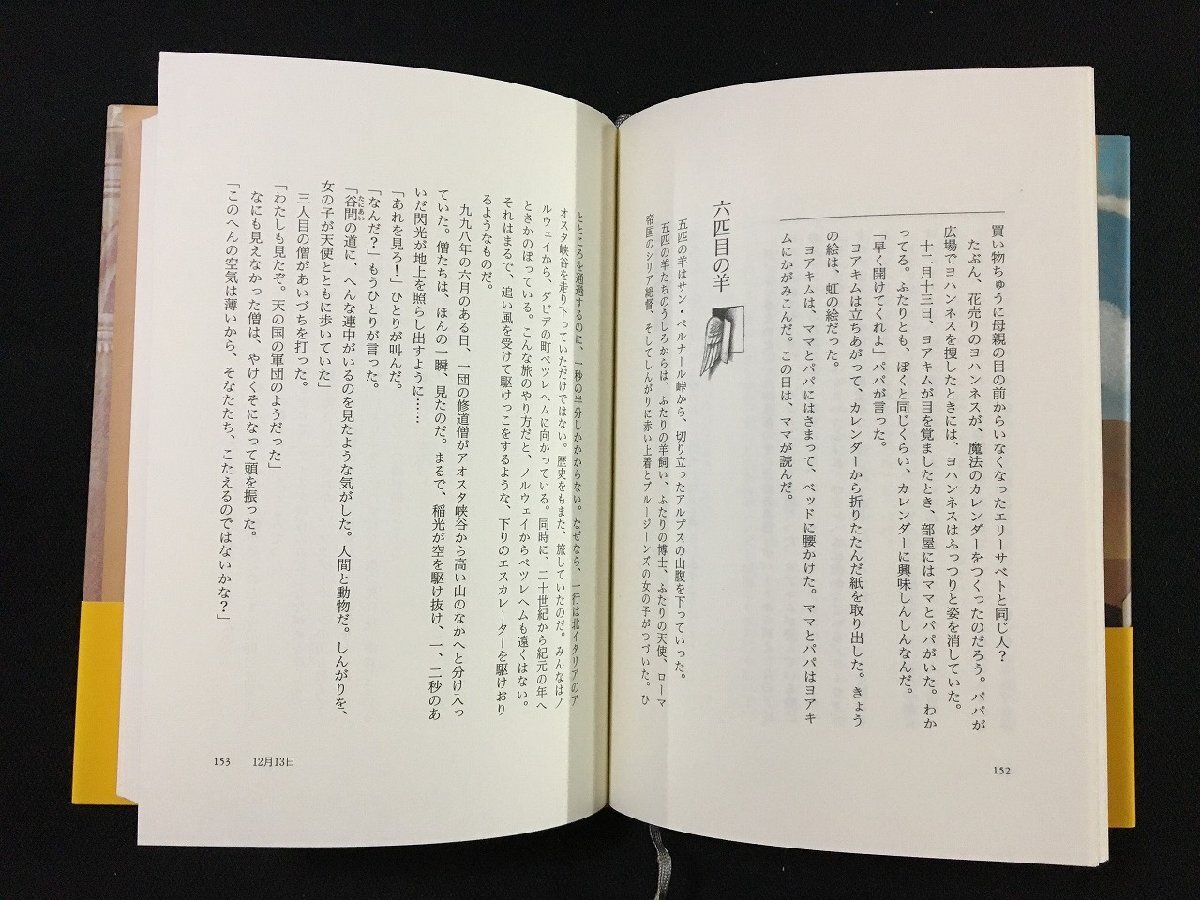 買い物ちゅうに母親の目の前からいなくなったエリーサベトと同じ人？
たぶん、花売りのヨハンネスが、魔法のカレンダーをつくったのだろう。パパが
広場でヨハンネスを捜したときには、ヨハンネスはふっつりと姿を消していた。
十二月十三日、ヨアキムが目を覚ましたとき、部屋にはママとパパがいた。わか
ってる。ふたりとも、ぼくと同じくらい、カレンダーに興味しんしんなんだ。
「早く開けてくれよ」パパが言った。
ヨアキムは立ちあがって、カレンダーから折りたたんだ紙を取り出した。きょう
の絵は、虹の絵だった。
ヨアキムは、ママとパパにはさまって、ベッドに腰かけた。ママとパパはヨアキ
ムにかがみこんだ。この日は、ママが読んだ。
六匹目の羊
五匹の羊はサン・ベルナール峠から、切り立ったアルプスの山腹を下っていった。
五匹の羊たちのうしろからは、ふたりの羊飼い、ふたりの博士、ふたりの天使、ローマ
帝国のシリア総督、そしてしんがりに赤い上着とブルージーンズの女の子がつづいた。ひ
152
とところを通過するのに、一秒の半分しかかからない。なぜなら、一行は北イタリアのア
オスタ峡谷を走り下っていただけではない。歴史をもまた、旅していたのだ。みんなはノ
ルウェイから、ダビデの町ベツレヘムに向かっている。同時に、二十世紀から紀元の年へ
ときかのぼっている。こんな旅のやり方だと、ノルウェイからベツレヘムも遠くはない。
それはまるで、追い風を受けて駆けっこをするような、下りのエスカレーターを駆けおり
るようなものだ。
九九八年の六月のある日、一団の修道僧がアオスタ峡谷から高い山のなかへと分け入っ
ていた。僧たちは、ほんの一瞬、見たのだ。まるで、稲光が空を駆け抜け、一、二秒のあ
いだ閃光が地上を照らし出すように……
「あれを見ろ！」ひとりが叫んだ。
「なんだ？」もうひとりが言った。
「谷間の道に、へんな連中がいるのを見たような気がした。人間と動物だ。しんがりを、
たにあい
女の子が天使とともに歩いていた」
三人目の僧があいづちを打った。
「わたしも見たぞ。天の国の軍団のようだった」
なにも見えなかった僧は、やけくそになって頭を振った。
「このへんの空気は薄いから、そなたたち、こたえるのではないかな？」
153 12月13日